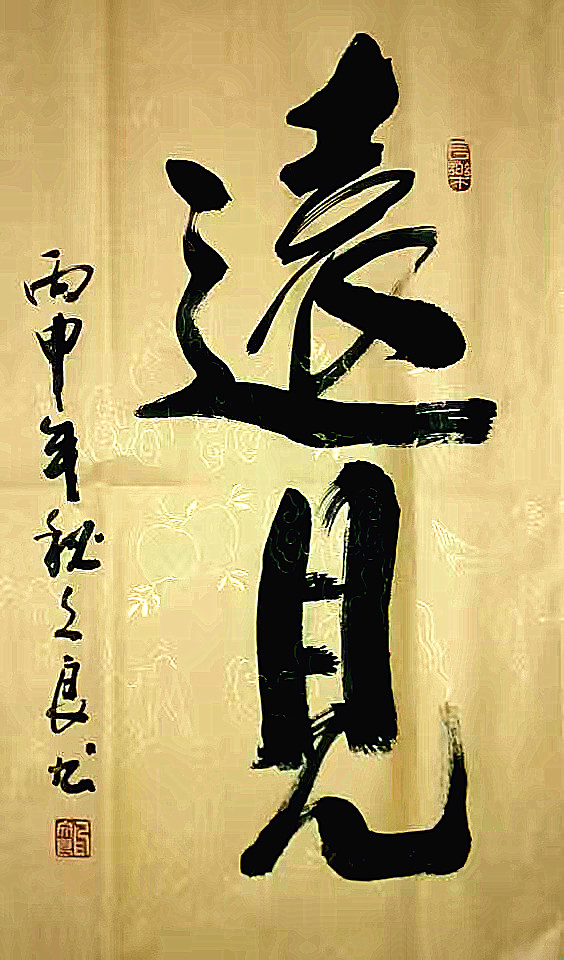 遠見
丙申年秋之良书